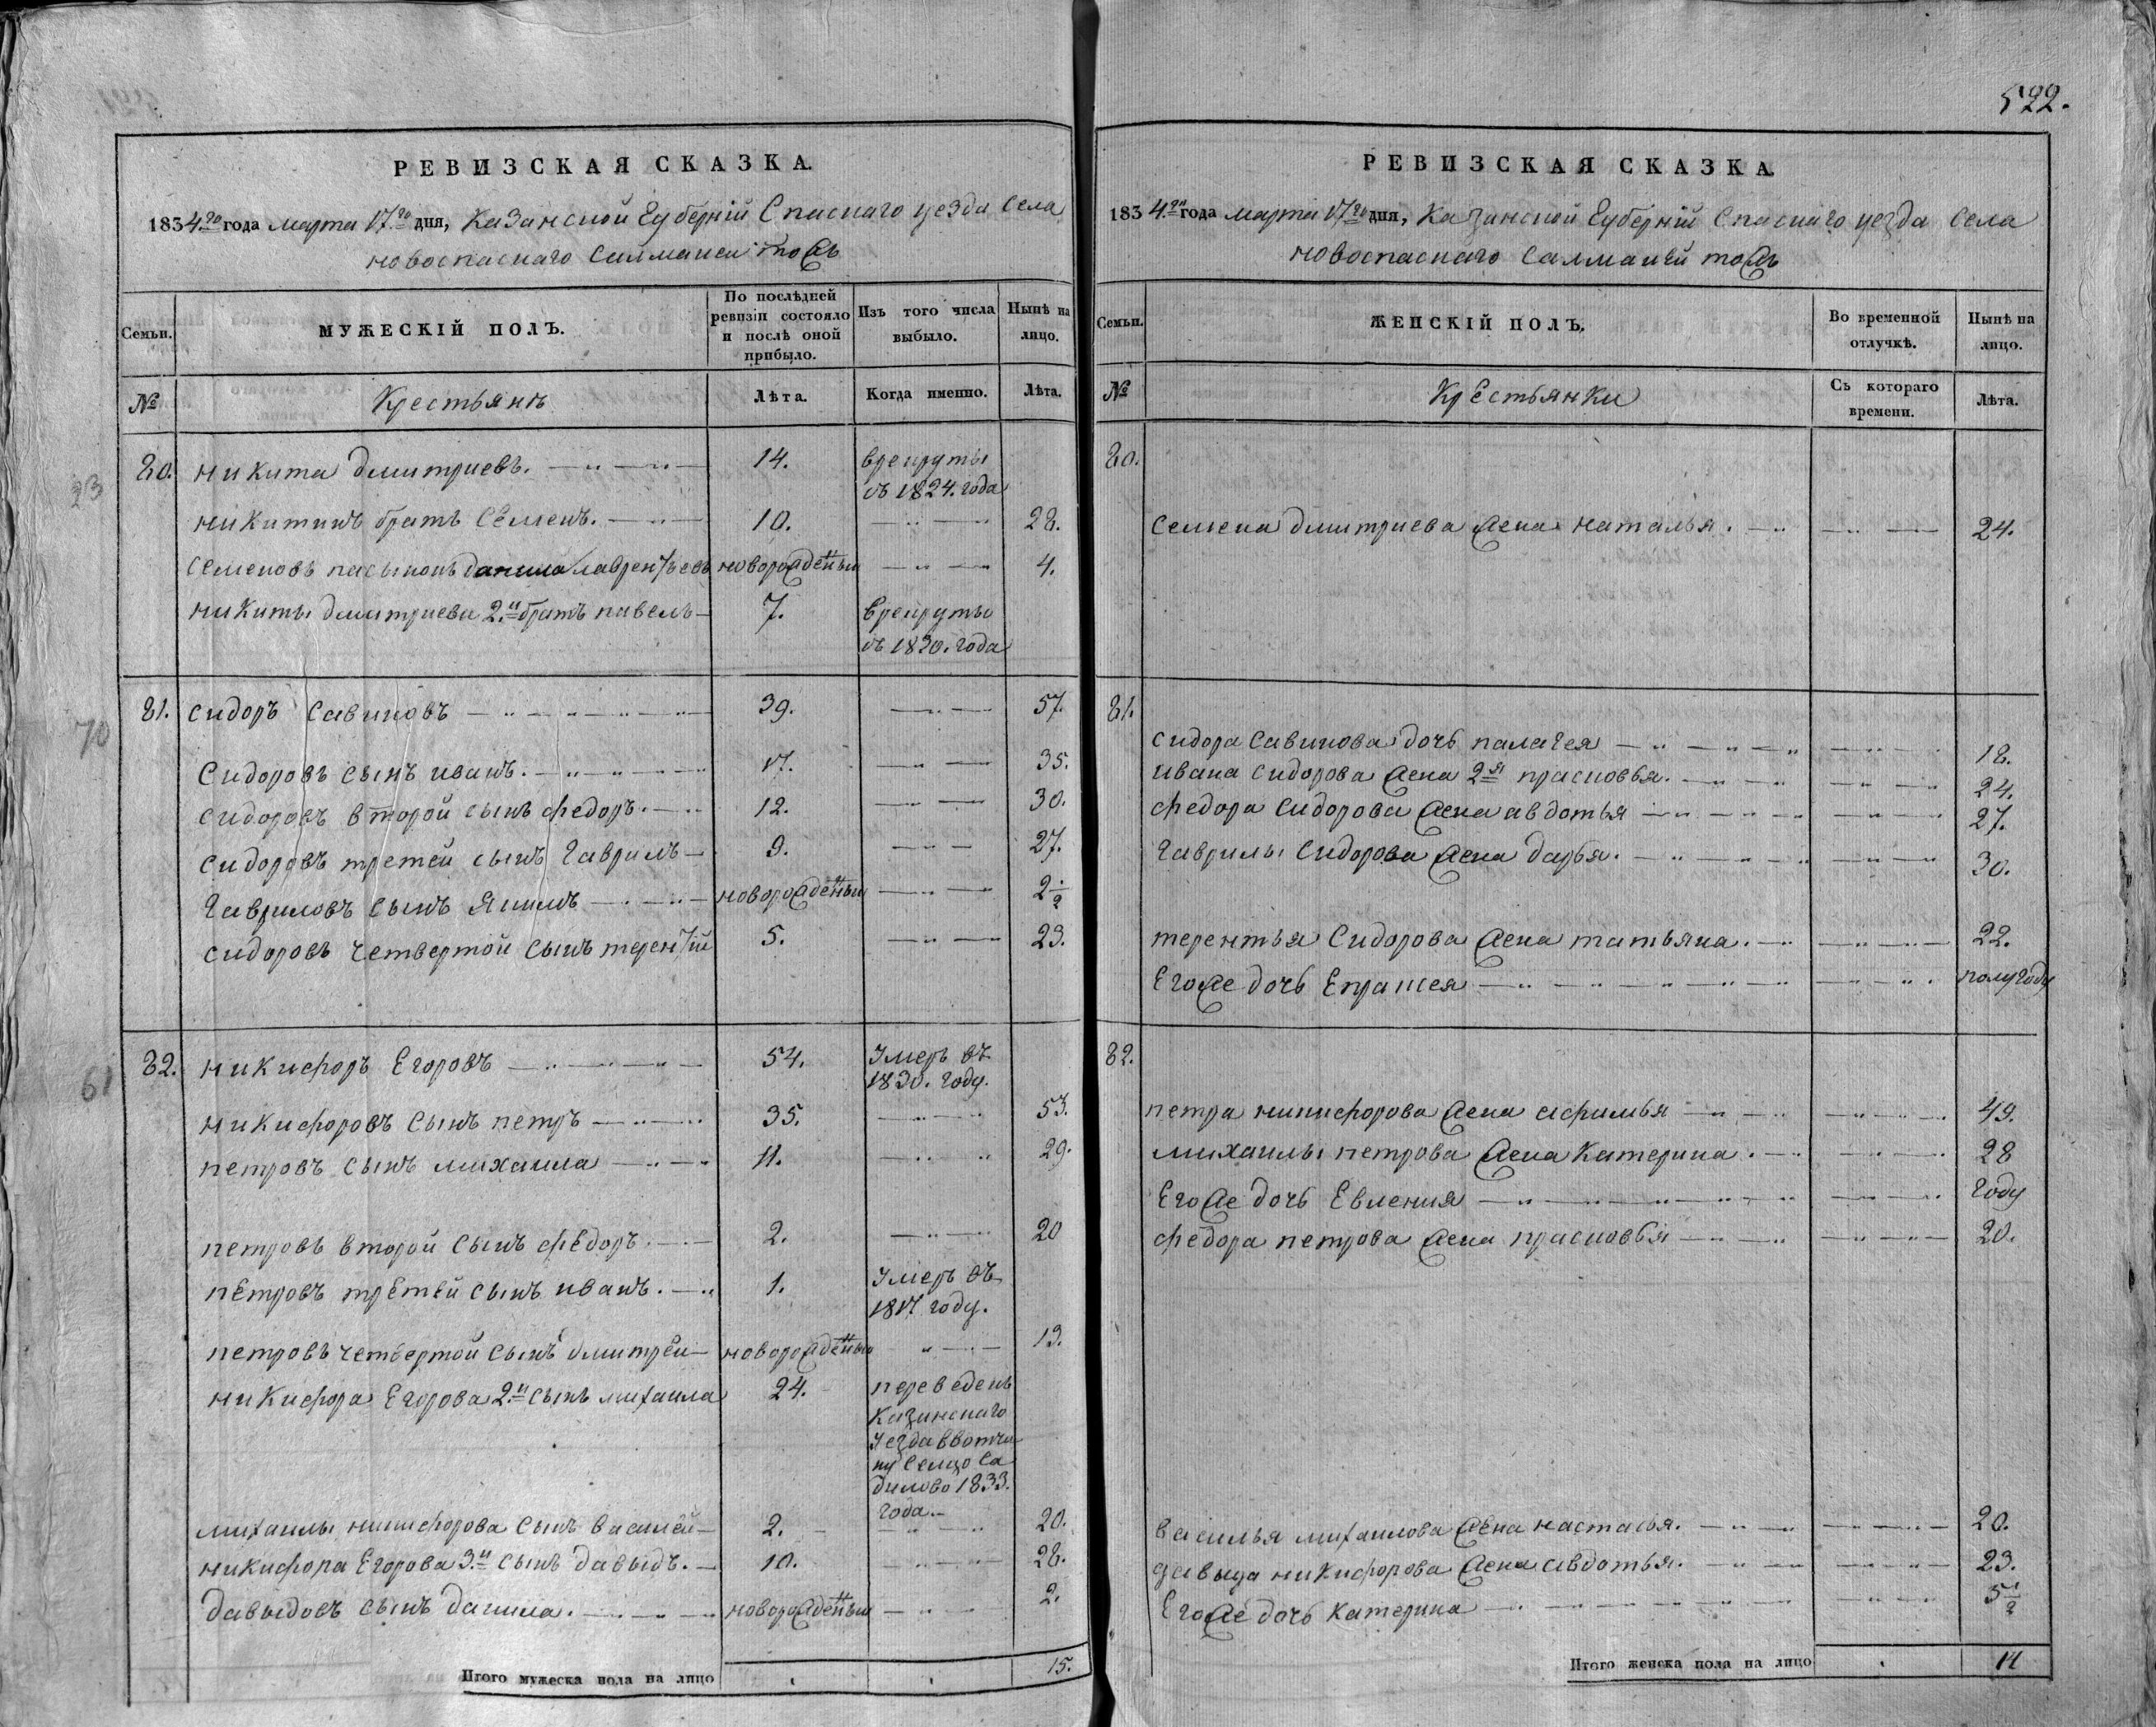 522.
РЕВИЗСКАЯ СКАЗКА.
1834го года марта 17го дня, Казанской Губерній Спаскаго уезда села
новоспаскаго Салманси тожъ
Семьи. МУЖЕСКІЙ ПОЛЪ. По послѣдней ревизіи состояло и послѣ оной прибыло. Изъ того числа выбыло. Нынѣ на лицо.
№ Крестьянъ Лѣта. Когда именно. Лѣта.
80. никита дмитриевъ. 14. врекруты
съ 1824. года
никитинъ братъ Семенъ. 10. 28.
семеновъ пасынокъ данила лаврентьевъ новорожденный 4.
никиты дмитриева 2й братъ павелъ 7. врекруты
съ 1830. года
81. сидоръ савиновъ 39. 57.
Сидоровъ сынъ иванъ. 17. 35.
сидоровъ второй сынъ федоръ. 12. 30.
сидоровъ третей сынъ гаврилъ 9. 27.
гавриловъ сынъ якимъ новорожденный 2 1/2
сидоровъ четвертой сынъ терентій 5. 23.
82. никифоръ Егоровъ 54. умеръ въ
1830. году.
никифоровъ сынъ петръ 35. 53.
петровъ сынъ михаила 11. 29.
петровъ второй сынъ федоръ. 2. 20
петровъ третей сынъ иванъ. 1. умеръ въ
1817 году.
петровъ четвертой сынъ дмитрей новорожденный 13.
никифора Егорова 2й сынъ михаила 24. переведенъ
казанскаго
уезда ввотчи
ну селцо са
дилово 1833.
года
михаилы никифорова сынъ василей 2. 20.
никифора Егорова 3й сынъ давыдъ. 10. 28.
давыдовъ сынъ данила. новорожденный 2.
Итого мужеска пола на лицо 15.
РЕВИЗСКАЯ СКАЗКА.
1834го года марта 17го дня, Казанской Губерній Спаскаго уезда села
новоспаскаго салманси тожъ
Семьи. ЖЕНСКІЙ ПОЛЪ. Во временной отлучкѣ. Нынѣ на лицо.
№ Крестьянки Съ котораго времени. Лѣта.
80.
семена дмитриева жена наталья. 24.
81.
сидора савинова дочь палагея 18.
ивана сидорова жена 2я прасковья. 24.
федора сидорова жена авдотья 27.
гаврилы сидорова жена дарья. 30.
терентья сидорова жена татьяна. 22.
Егоже дочь Епраксея полугоду
82.
петра никифорова жена афимья 49.
михаилы петрова жена катерина. 28
Егоже дочь Евления году
федора петрова жена прасковья 20.
василья михаилова жена настасья. 20.
давыда никифорова жена авдотья. 23.
Егоже дочь катерина 5 1/2
Итого женска пола на лицо 14
23
70
61